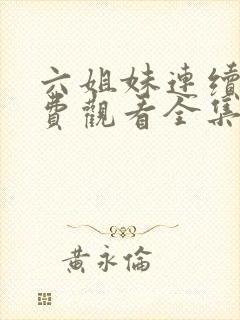 六姐妹連續
費觀看全集
黃永倫